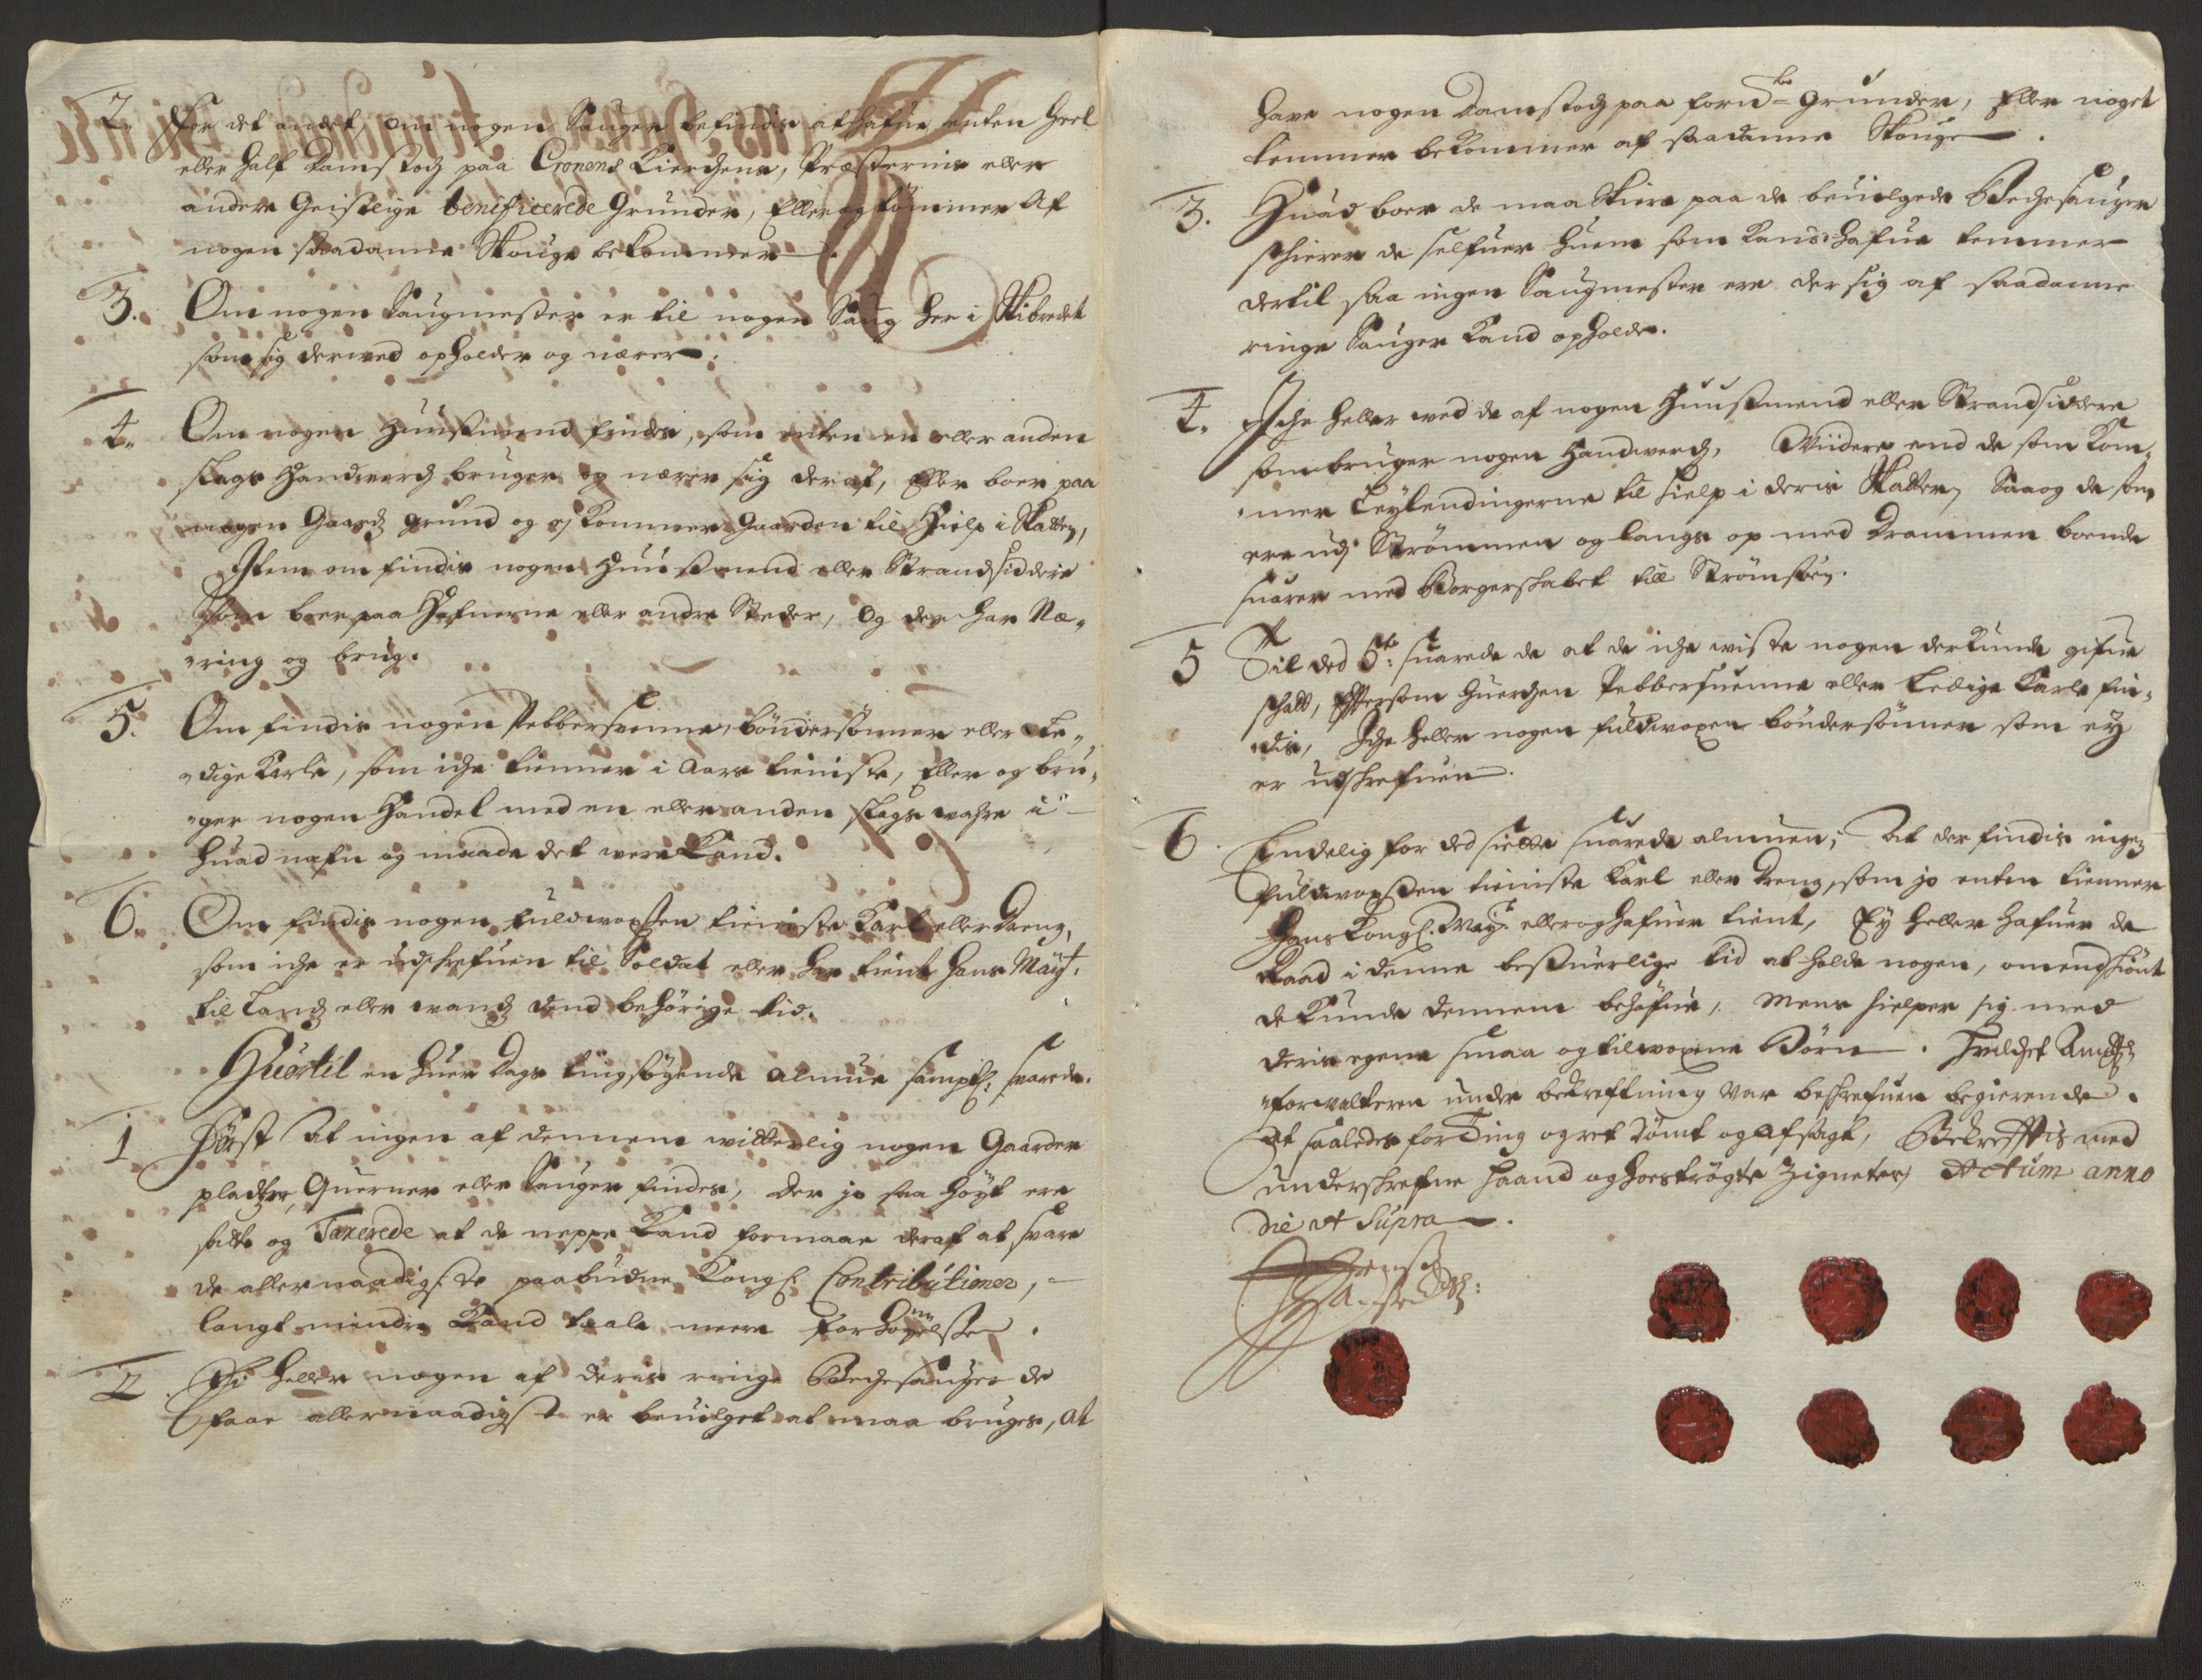 2. For det andet, om nogen Sauger befindis at hafue enten heel
eller half Damstoch paa Cronens Kierchens, Præsternis eller
andere Geistlige beneficerede Grunder, Eller og tømmer Af
nogen saadanne Skouge bekommer.
3. Om nogen Saugmester er til nogen Saug her i Skibredet
som sig derued opholder og nærer.
4. Om nogen Huusmend findes, som enten en eller anden
slags Handwerch bruger og nærer sig deraf, Eller boer paa
nogen Gaards grund og ej kommer Gaarden til Hielp i Skatten,
Item om findis nogen Huusmend eller Strandsiddere
som boer paa Hafnerne eller andre Steder, og der har Næ,,
,,ring og brug.
5. Om findis nogen Pebbersvenne, bøndersønner eller Le,,
,,dige Karle, som iche tienner i Aars tieniste, Eller og bru,,
,,ger nogen Handel med en eller anden slags wahre i
huad nafn og maade det were Kand.
6. Om findis nogen fuldvoxen tieniste Karl eller dreng,
som iche er udschrefuen til Soldat eller har tient Hans Mayt.
til Land eller wand dend behørige tid.
Huortil en huer dags tingsøgende almue sampt. svarede.
1 Først At ingen af dennem witterlig nogen Gaarder
pladtzer, Querner eller Sauger findes, der jo saa høyt ere
satte og Taxerede at de neppe Kand formaae deraf at svare
de allernaadigste paabudne Kongl. Contributioner,
langt mindre Kand taale meere forhøyelse.
2 Ei heller nogen af deris ringe Bechesauger de
faae allernaadigst er beuilget at maa bruges, at
have nogen Damstoch paa fornde Grunder, Eller noget
temmer bekommer af saadanne Skouge.
3. Huad boer de maa Skiere paa de beuilgede Bechesauger
schierer de selfuer huem som Kand hafue temmer
dertil saa ingen Saugmester ere der sig af saadanne
ringe Sauger Kand opholde.
4. Iche heller ved de af nogen Huusmend eller Strandsiddere
som bruger nogen Handwerch, Widere end de som kom,,
,,mer Leylendingerne til hielp i deris Skatter, Saa og de som
ere ved Strømmen og langs op med Drammen boende
suarer med Borgerskabet till Strømsøen.
5 Til ded 5te. suarede de at de iche wiste nogen der kunde gifue
schatt, Eftersom huerchen Pebbersuenne eller Ledige Karle fin,,
,,dis, Iche heller nogen fuldwoxen bøndersønner som ey
er udschrefuen.
6 Endelig for ded siette suarede almuen, At der findis ingen
fuldwoxen tieniste Karl eller dreng, som jo enten tienner
Hans Kongl. Mayt. eller og hafuer tient, Ey heller hafuer de
Raad i denne besuerlige tid at holde nogen, omendskiønt
de kunde dennem behøfue, Mens hielper sig med
deris egene smaa og tilwoxene Børn. Huilchet Ambts
,,forvalteren under bekreftning var beschrefuen begierende.
At saaledes for Ting og ret dømt og afsagt, Bekreftis med
underschrefne haand og hostrøgte Zigneter, Actum anno
die ut Supra.